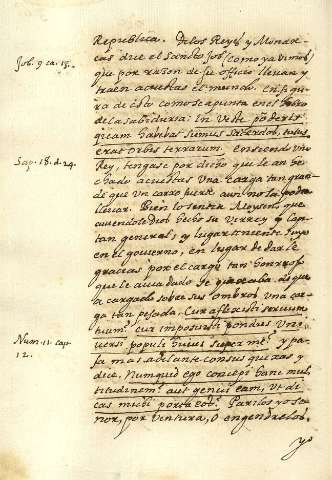 Republica. De los Reyes y Monar-
cas dice el Sancto Job, como ya vimos
que por razon de su officio lleuan y
traen acuestas el mundo. En figu
ra de esto como se apunta en el libro
de la sabiduria: In veste poderis
quam habebat summus sacerdos, totus
erat orbis terrarum. En siendo vno
Rey, tengase por dicho que le an he
chado acuestas vna carga tan gran
de que un carro fuerte aun no la podra
lleuar. Bien lo sentia Moysen, que
auiendole Dios hecho su virrey y capi
tan general, y lugar teniente suyo
en el gouierno, en lugar de dar le
gracias por el cargo tan honrroso
que le auia dado se quexaba de que
a cargado sobre sus ombros una car
ga tan pesada. Cur afflixisti seruum
tuum? Cur imposuisti pondus vni
uersi populi huius super me? y pa
sa mas adelante con sus quexas y
dice. Numquid ego concepi hanc mul
titudinem? aut genui eam, ut di
cas mihi porta eos? Parilos yo se
ñor, por ventura, o engendrelos,
yo
Job. 9. ca. 13.
Sap. 18. d. 24.
Num. 11. cap
12.